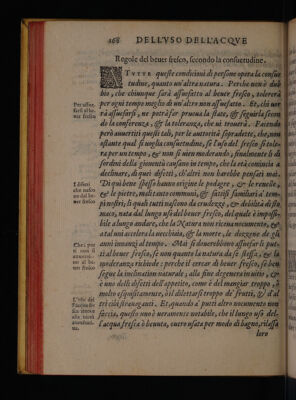 168 DELL'VSO DELL'ACQVE
Regole del beuer fresco, secondo la consuetudine.
A TVTTE queste condicioni di persone opera la consue
tudine, quanto un'altra natura. Perche non è dub
bio, che chiunque sarà assuefatto al beuer fresco, tolererà
per ogni tempo meglio di un'altro non assuefatto. Et, chi vor
rà assuefarsi, ne potrà far pruoua in state, & seguirla secon
do la conferenza, & la toleranza, che ui trouerà. Facendo
però auuertiti questi tali, per le autorità sopradette, che, non
ostante qual si uoglia consuetudine, se l'uso del fresco si tole
ra per un tempo, & non si uien moderando, finalmente li di
sordini della giouentù causano in tempo, che la età comincia a
declinare, di quei difetti, ch'altri non harebbe pensati mai.
Di quì bene spesso hanno origine le podagre, & le renelle,
& le pietre, mal tanto commune, & fatto si familiare a' tem
pi nostri; li quali tutti nascono da crudezza, & debilità di sto
maco, nata dal lungo uso del beuer fresco, del quale è impossi-
bile a lungo andare, che la Natura non riceua nocumento, &
a tal uni accelera la uecchiaia, & la morte, le dozzene de gli
anni innanzi al tempo. Mà si deuerebbono assuefar li put-
ti al beuer fresco, se non quanto la natura da se stessa, & la
moderanza richiede: perche il cercar di beuer fresco, se ben
segue la inclination naturale; alla fine degenera in uitio, &
è uno delli difetti dell'appetito, come è del mangiar troppo, ò
molto esquisitamente, ò il dilettarsi troppo de' frutti, & d'al
tri cibi stranaganti. Et, quando a' putti altro nocumento non
faccia, questo uno è ueramente notabile, che il lungo uso del-
l'acqua fresca è beuuta, come usata per modo di bagno, rilassa
loro
Per assue-
farsi al be-
uer fresco
I difetti
che nasco
no dal be-
uer fresco
Che i put
ti non si
auuezzi-
no al be-
uer fresco